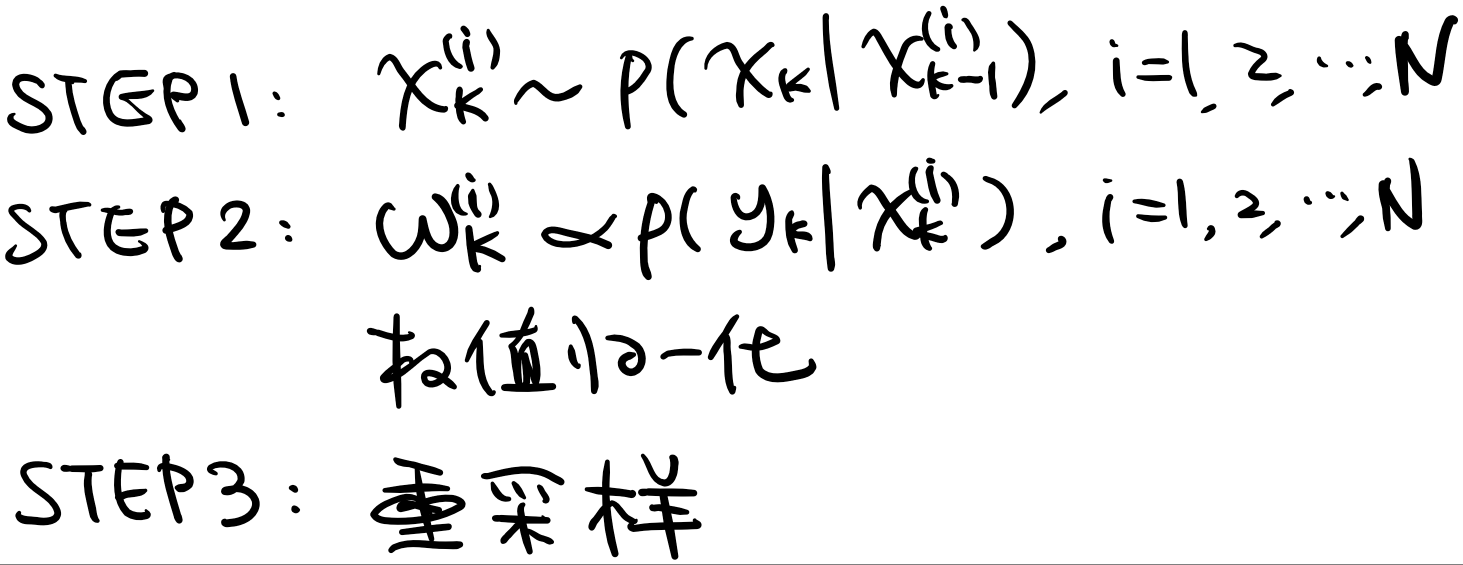 STEP 1: x_k^{(i)} ~ p(x_k | x_{k-1}^{(i)}), i=1, 2, ..., N
STEP 2: ω_k^{(i)} ∝ p(y_k | x_k^{(i)}), i=1, 2, ..., N
权值归一化
STEP 3: 重采样